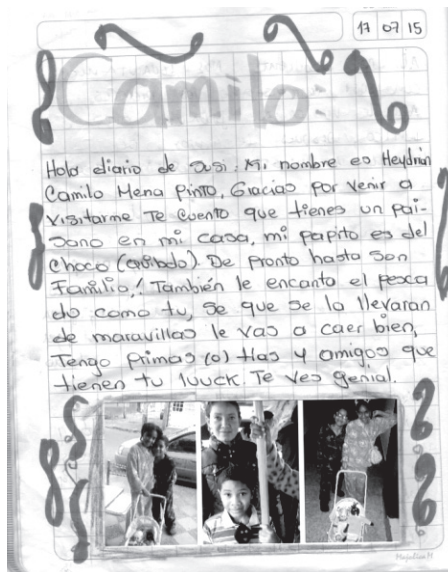 17 07 15
Camilo
Hola diario de Susi: Mi nombre es Heydrian
Camilo Mena Pinto, Gracias por venir a
visitarme Te cuento que tienes un pai-
sano en mi casa, mi papito es del
Choco (quibdo). De pronto hasta son
Familia,! También le encanta el pesca
do como tu, se que se la llevaran
de maravillas le vas a caer bien,
Tengo primas (o) tias y amigos que
tienen tu luuck. Te ves genial.